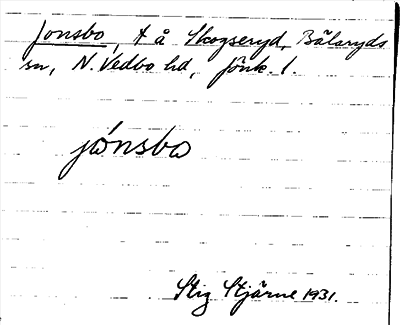 Jonsbo, t å Skogseryd, Bälaryds
sn, N. Vedbo hd, Jönk. l.
jónsbo
Stig Stjärne 1931.